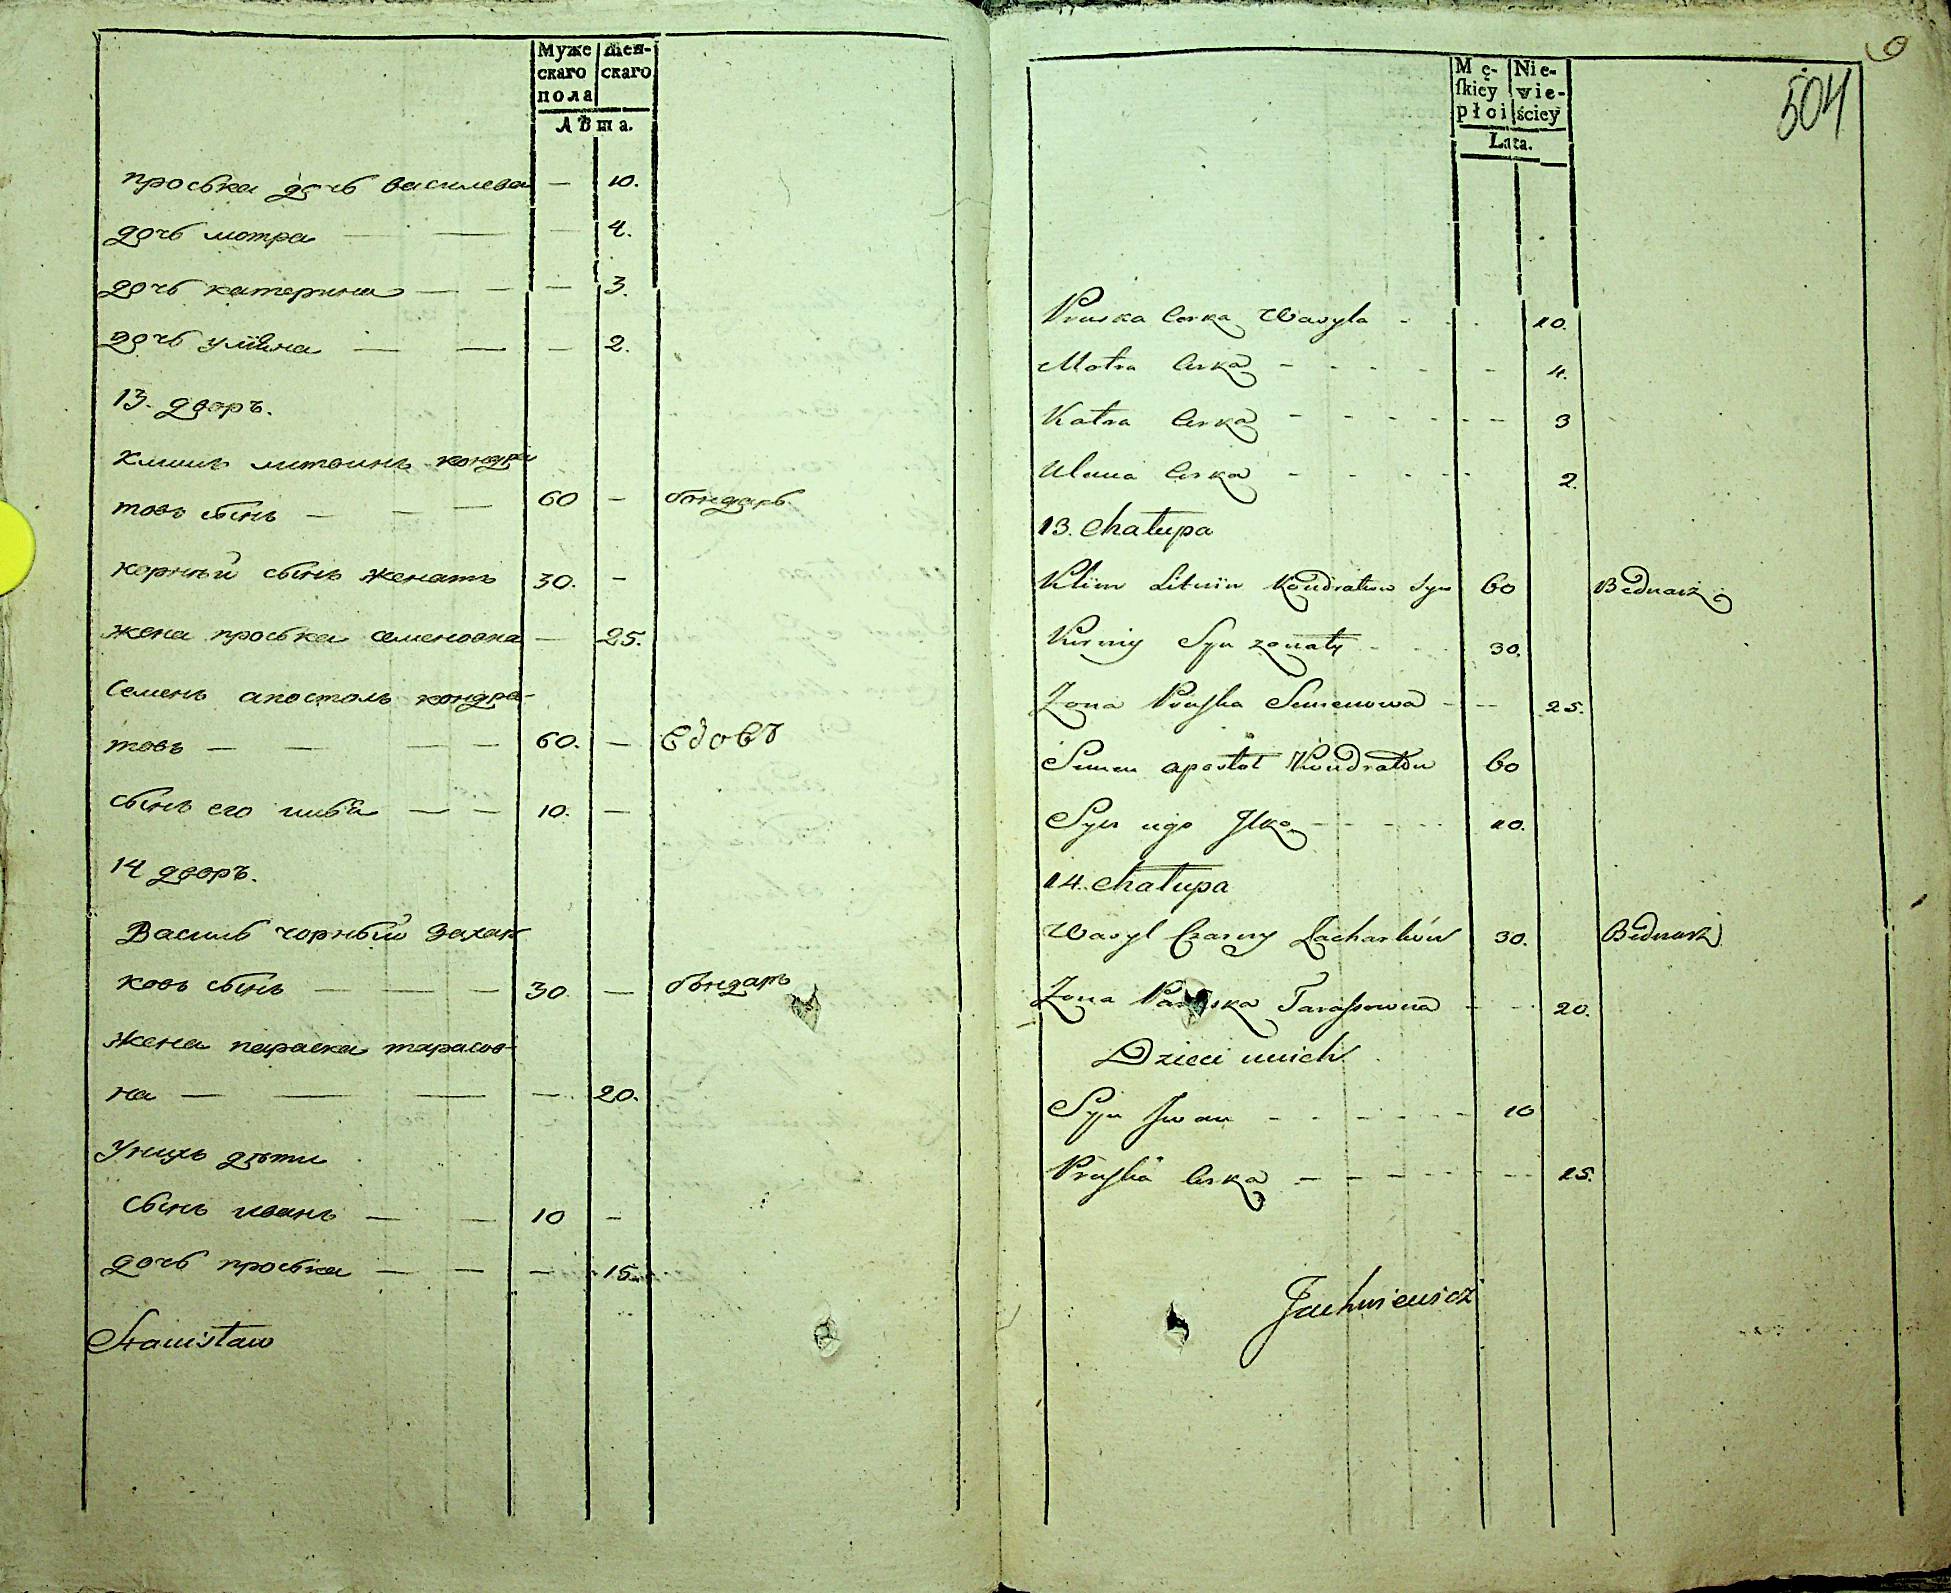 Муже
скаго
пола
Жен-
скаго
Лѣта.
проська дочь василева — 10.
дочь мотра — — — 4.
дочь катерина — — — 3.
дочь улияна — — — 2.
13. дворъ.
климъ литвинъ кондра
товъ сынъ — — — 60 — бондарь
корнѣй сынъ женатъ 30. —
жена проська семеновна — 25.
Семенъ апостолъ кондра-
товъ — — — — 60. — вдовъ
сынъ его илько — — 10. —
14 дворъ.
Василь чорный захар
ковъ сынъ — — — 30. — бондарь
жена параска тарасов-
на — — — — 20.
У нихъ дѣти
сынъ иванъ — — 10 —
дочь проська — — — 15.
Stanisław
504
Mę-
skiey
płci
Nie-
wie-
ściey
Lata.
Pruska Corka Wasyla - - - 10.
Motra Corka - - - - - 4.
Katra Corka - - - - - - 3
Ulana Corka - - - - - 2.
13. Chałupa
Klim Litwin Kondratow Syn 60 Bednarz
Kirniy Syn zonaty - - - 30.
Zona Pruska Semenowa - -- 25.
Semen apostoł Kondratow 60
Syn iego Ilko - - - - - 10.
14. Chałupa
Wasyl Czarny Zacharków 30. Bednarz
Zona Paraska Tarassowna - - - 20.
Dzieci unich
Syn Iwan - - - - - - - 10
Pruska Corka - - - - - - - - 15.
Jachniewicz